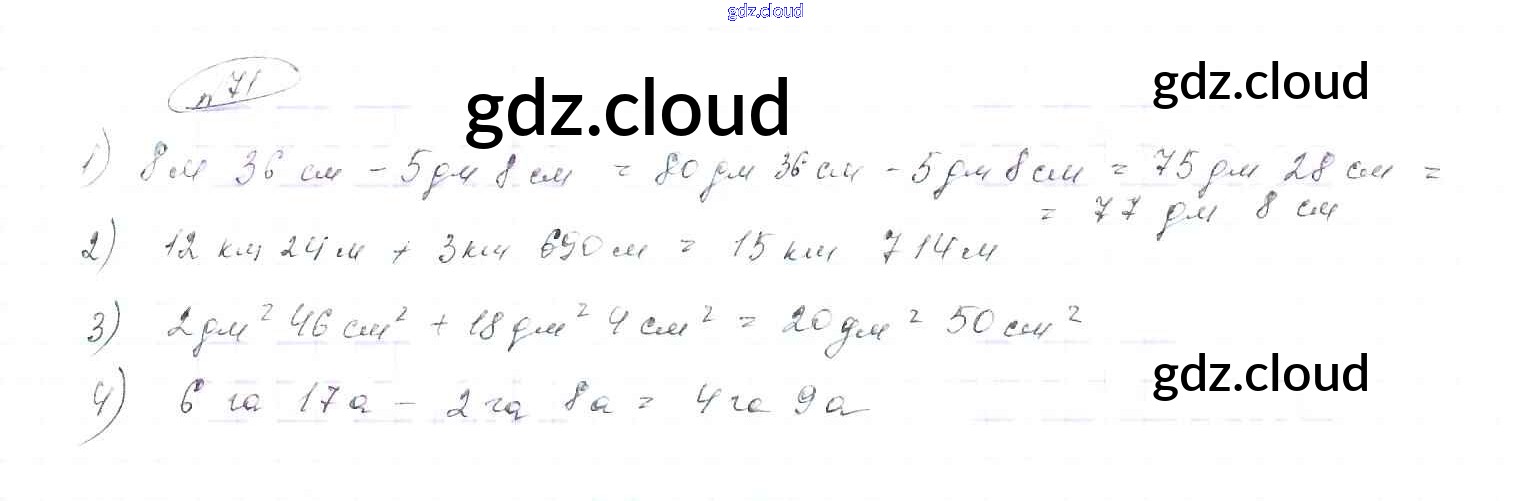 gdz.cloud
n 71
gdz.cloud
gdz.cloud
1) 8м 36 см - 5дм 8 см = 80 дм 36 см - 5 дм 8 см = 75 дм 28 см =
= 77 дм 8 см
2) 12 км 24 м + 3 км 690 м = 15 км 714 м
3) 2 дм² 46 см² + 18 дм² 4 см² = 20 дм² 50 см²
gdz.cloud
4) 6 га 17 а - 2 га 8 а = 4 га 9 а